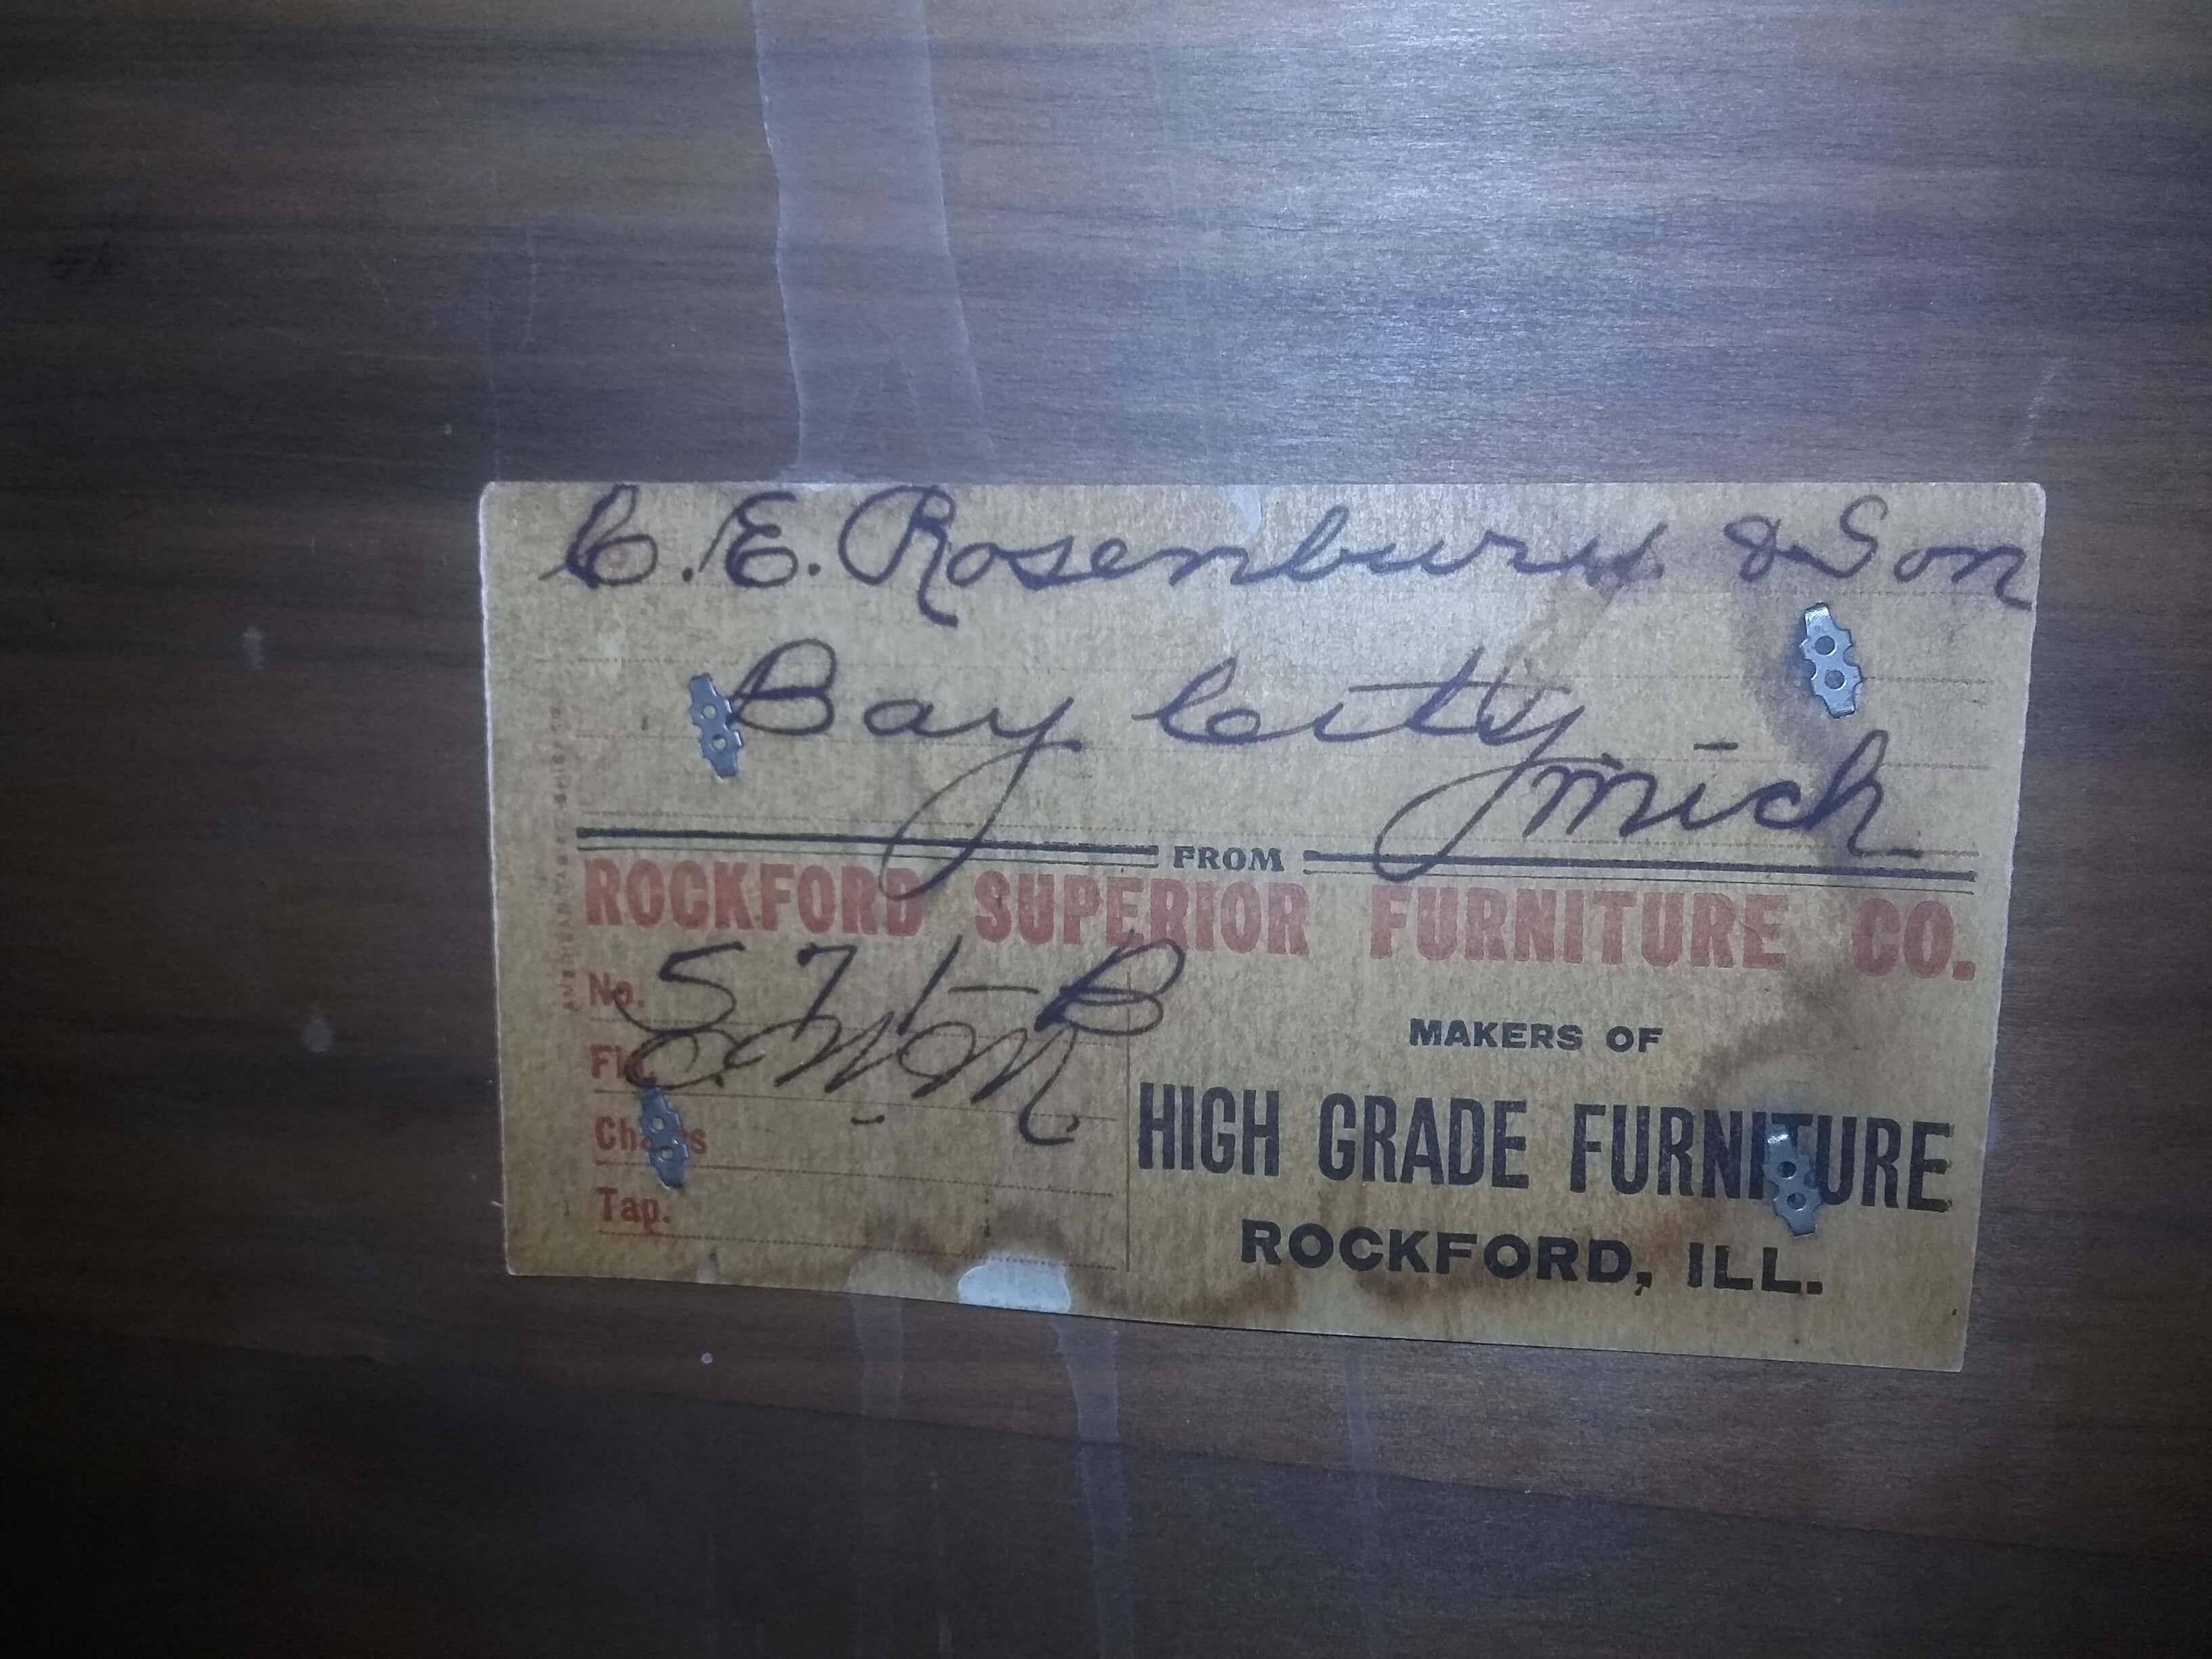 C. E. Rosenbury & Son
Bay City
Mich
FROM
ROCKFORD SUPERIOR FURNITURE CO.
No. 571-B
Fin.
Chairs
Tap.
MAKERS OF
HIGH GRADE FURNITURE
ROCKFORD, ILL.